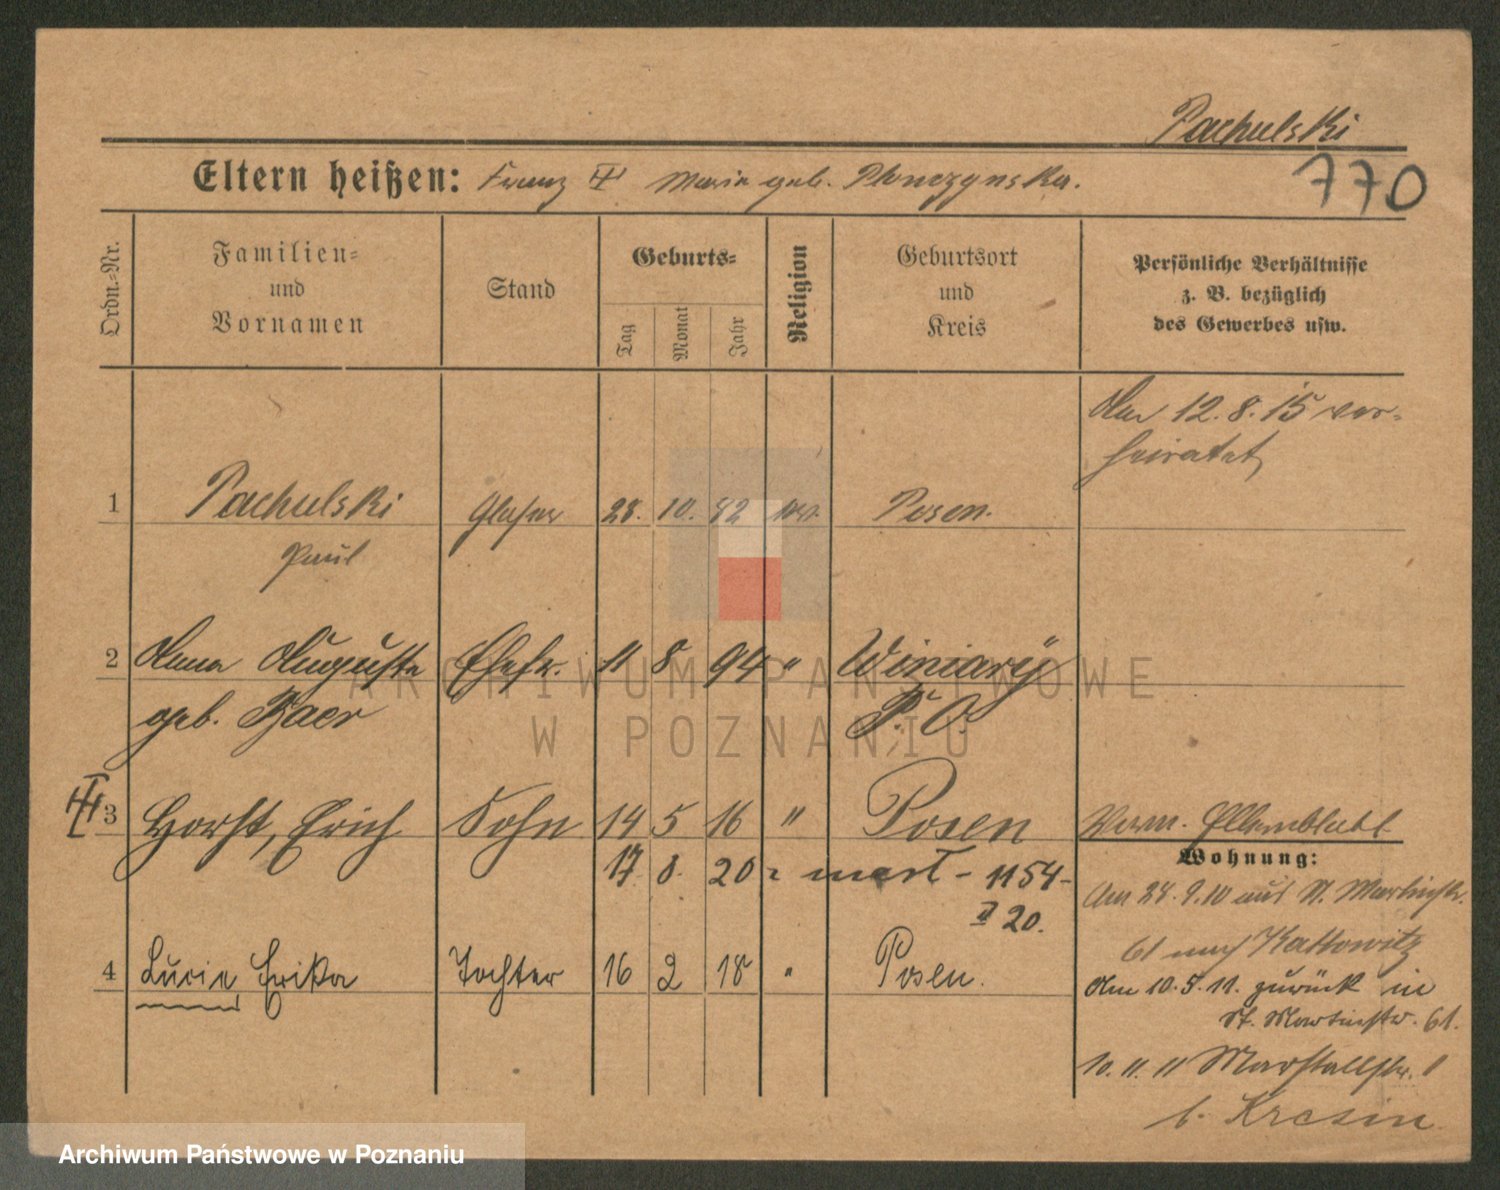 Pachulski
770
Eltern heißen: Franz Marie geb. Plonczynska.
Ordn.-Nr.
Familien- und Vornamen
Stand
Geburts-
Tag
Monat
Jahr
Religion
Geburtsort und Kreis
Persönliche Verhältnisse
z. B. bezüglich
des Gewerbes usw.
Am 12.8.15 ver-
heiratet
1 Pachulski Glaser 28. 10. 82 Posen.
Paul
2 Anna Auguste Ehefr. 11 8 94 " Winiary
geb. Baer P. O.
3 Horst, Erich Sohn 14 5 16 " Posen
17 8. 20 - 1154-
20.
Wohnung:
Am 28.9.10 aus St. Martinstr.
61 nach Kattowitz
4 Lucie Erika Tochter 16 2 18 " Posen.
Am 10.5.11. zurück in
St. Martinstr. 61.
10.11.11 Marstallstr. 1
b. Krcsin
ARCHIWUM PAŃSTWOWE
W POZNANIU
Archiwum Państwowe w Poznaniu